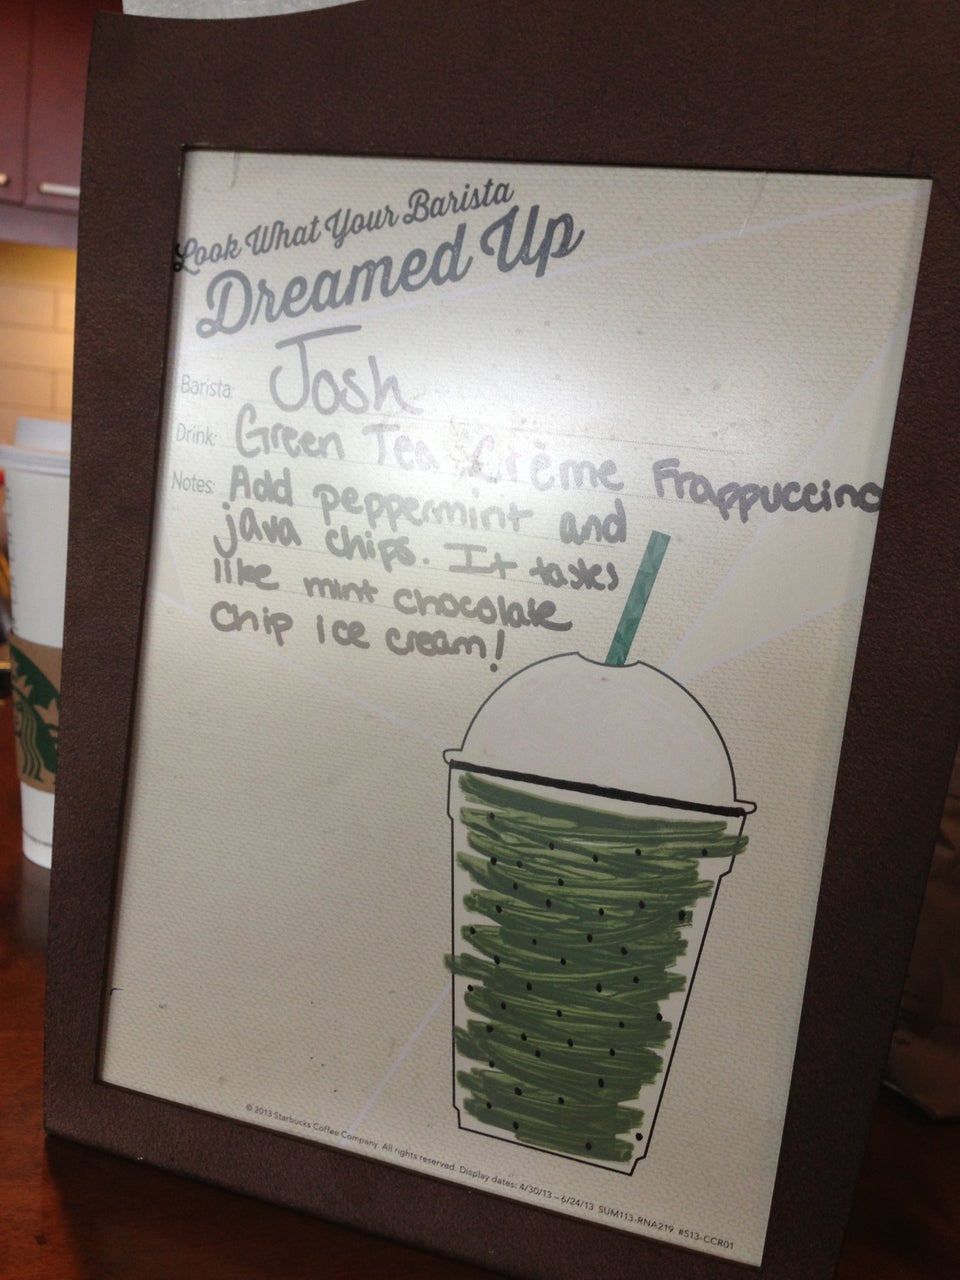 Look What Your Barista
Dreamed Up
Barista: Josh
Drink: Green Tea Crème Frappuccino
Notes: Add peppermint and
java chips. It tastes
like mint chocolate
chip ice cream!
© 2013 Starbucks Coffee Company. All rights reserved. Display dates: 4/30/13 – 6/24/13 SUM113-RNA219 #513-CCR01